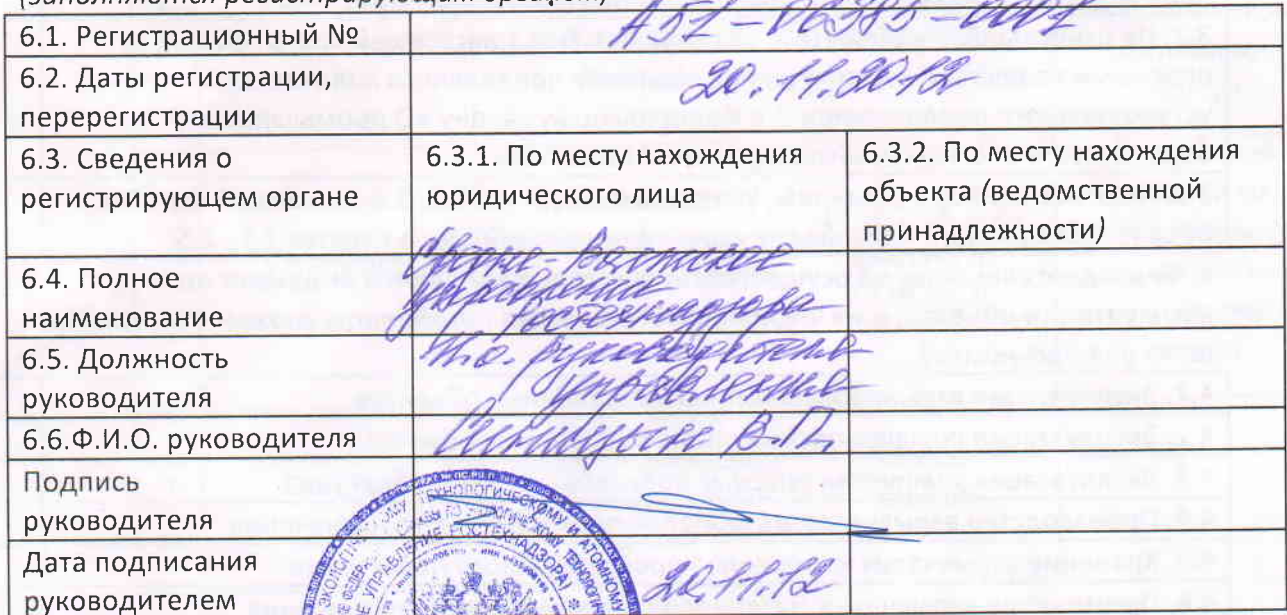 (заполняется регистрирующим органом)
6.1. Регистрационный № А51-06385-0007
6.2. Даты регистрации,
перерегистрации
20.11.2012
6.3. Сведения о
регистрирующем органе
6.3.1. По месту нахождения
юридического лица
6.3.2. По месту нахождения
объекта (ведомственной
принадлежности)
6.4. Полное
наименование
Средне-Волжское
управление
Ростехнадзора
6.5. Должность
руководителя
И.о. руководителя
управления
6.6.Ф.И.О. руководителя
В.П.
Подпись
руководителя
Дата подписания
руководителем
20.11.12
ТЕХНОЛОГИЧЕСКОМУ АТОМНОМУ
РОСТЕХНАДЗОРА